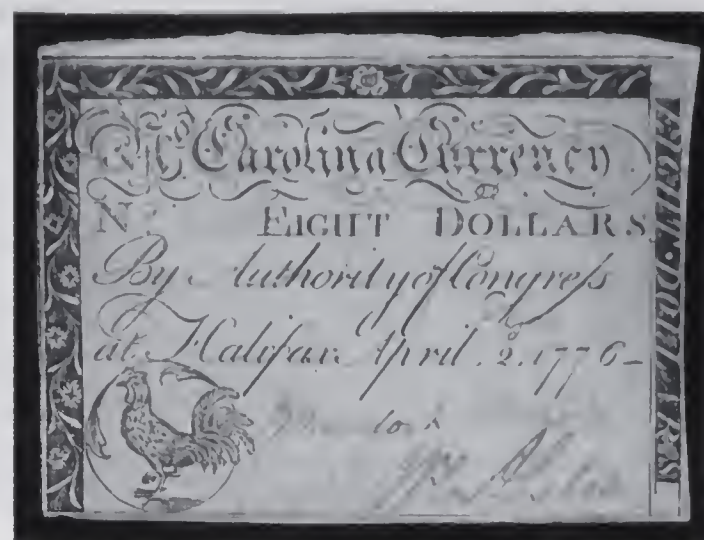 No Carolina Currency.
No. EIGHT DOLLARS
By Authority of Congreſs
at Halifax April .2. 1776
EIGHT · DOLLARS